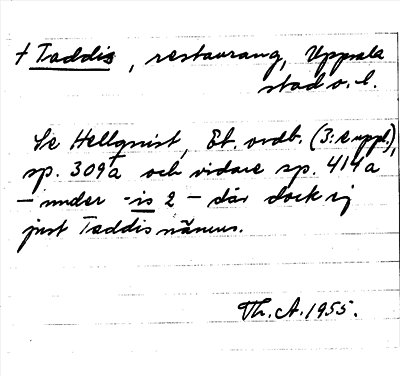 † Taddis, restaurang, Uppsala
stad o. l.
Se Hellquist, Et. ordb. (3:e uppl.),
sp. 309a och vidare sp. 414a
– under -is 2 – där dock ej
just Taddis nämns.
Th. A. 1955.